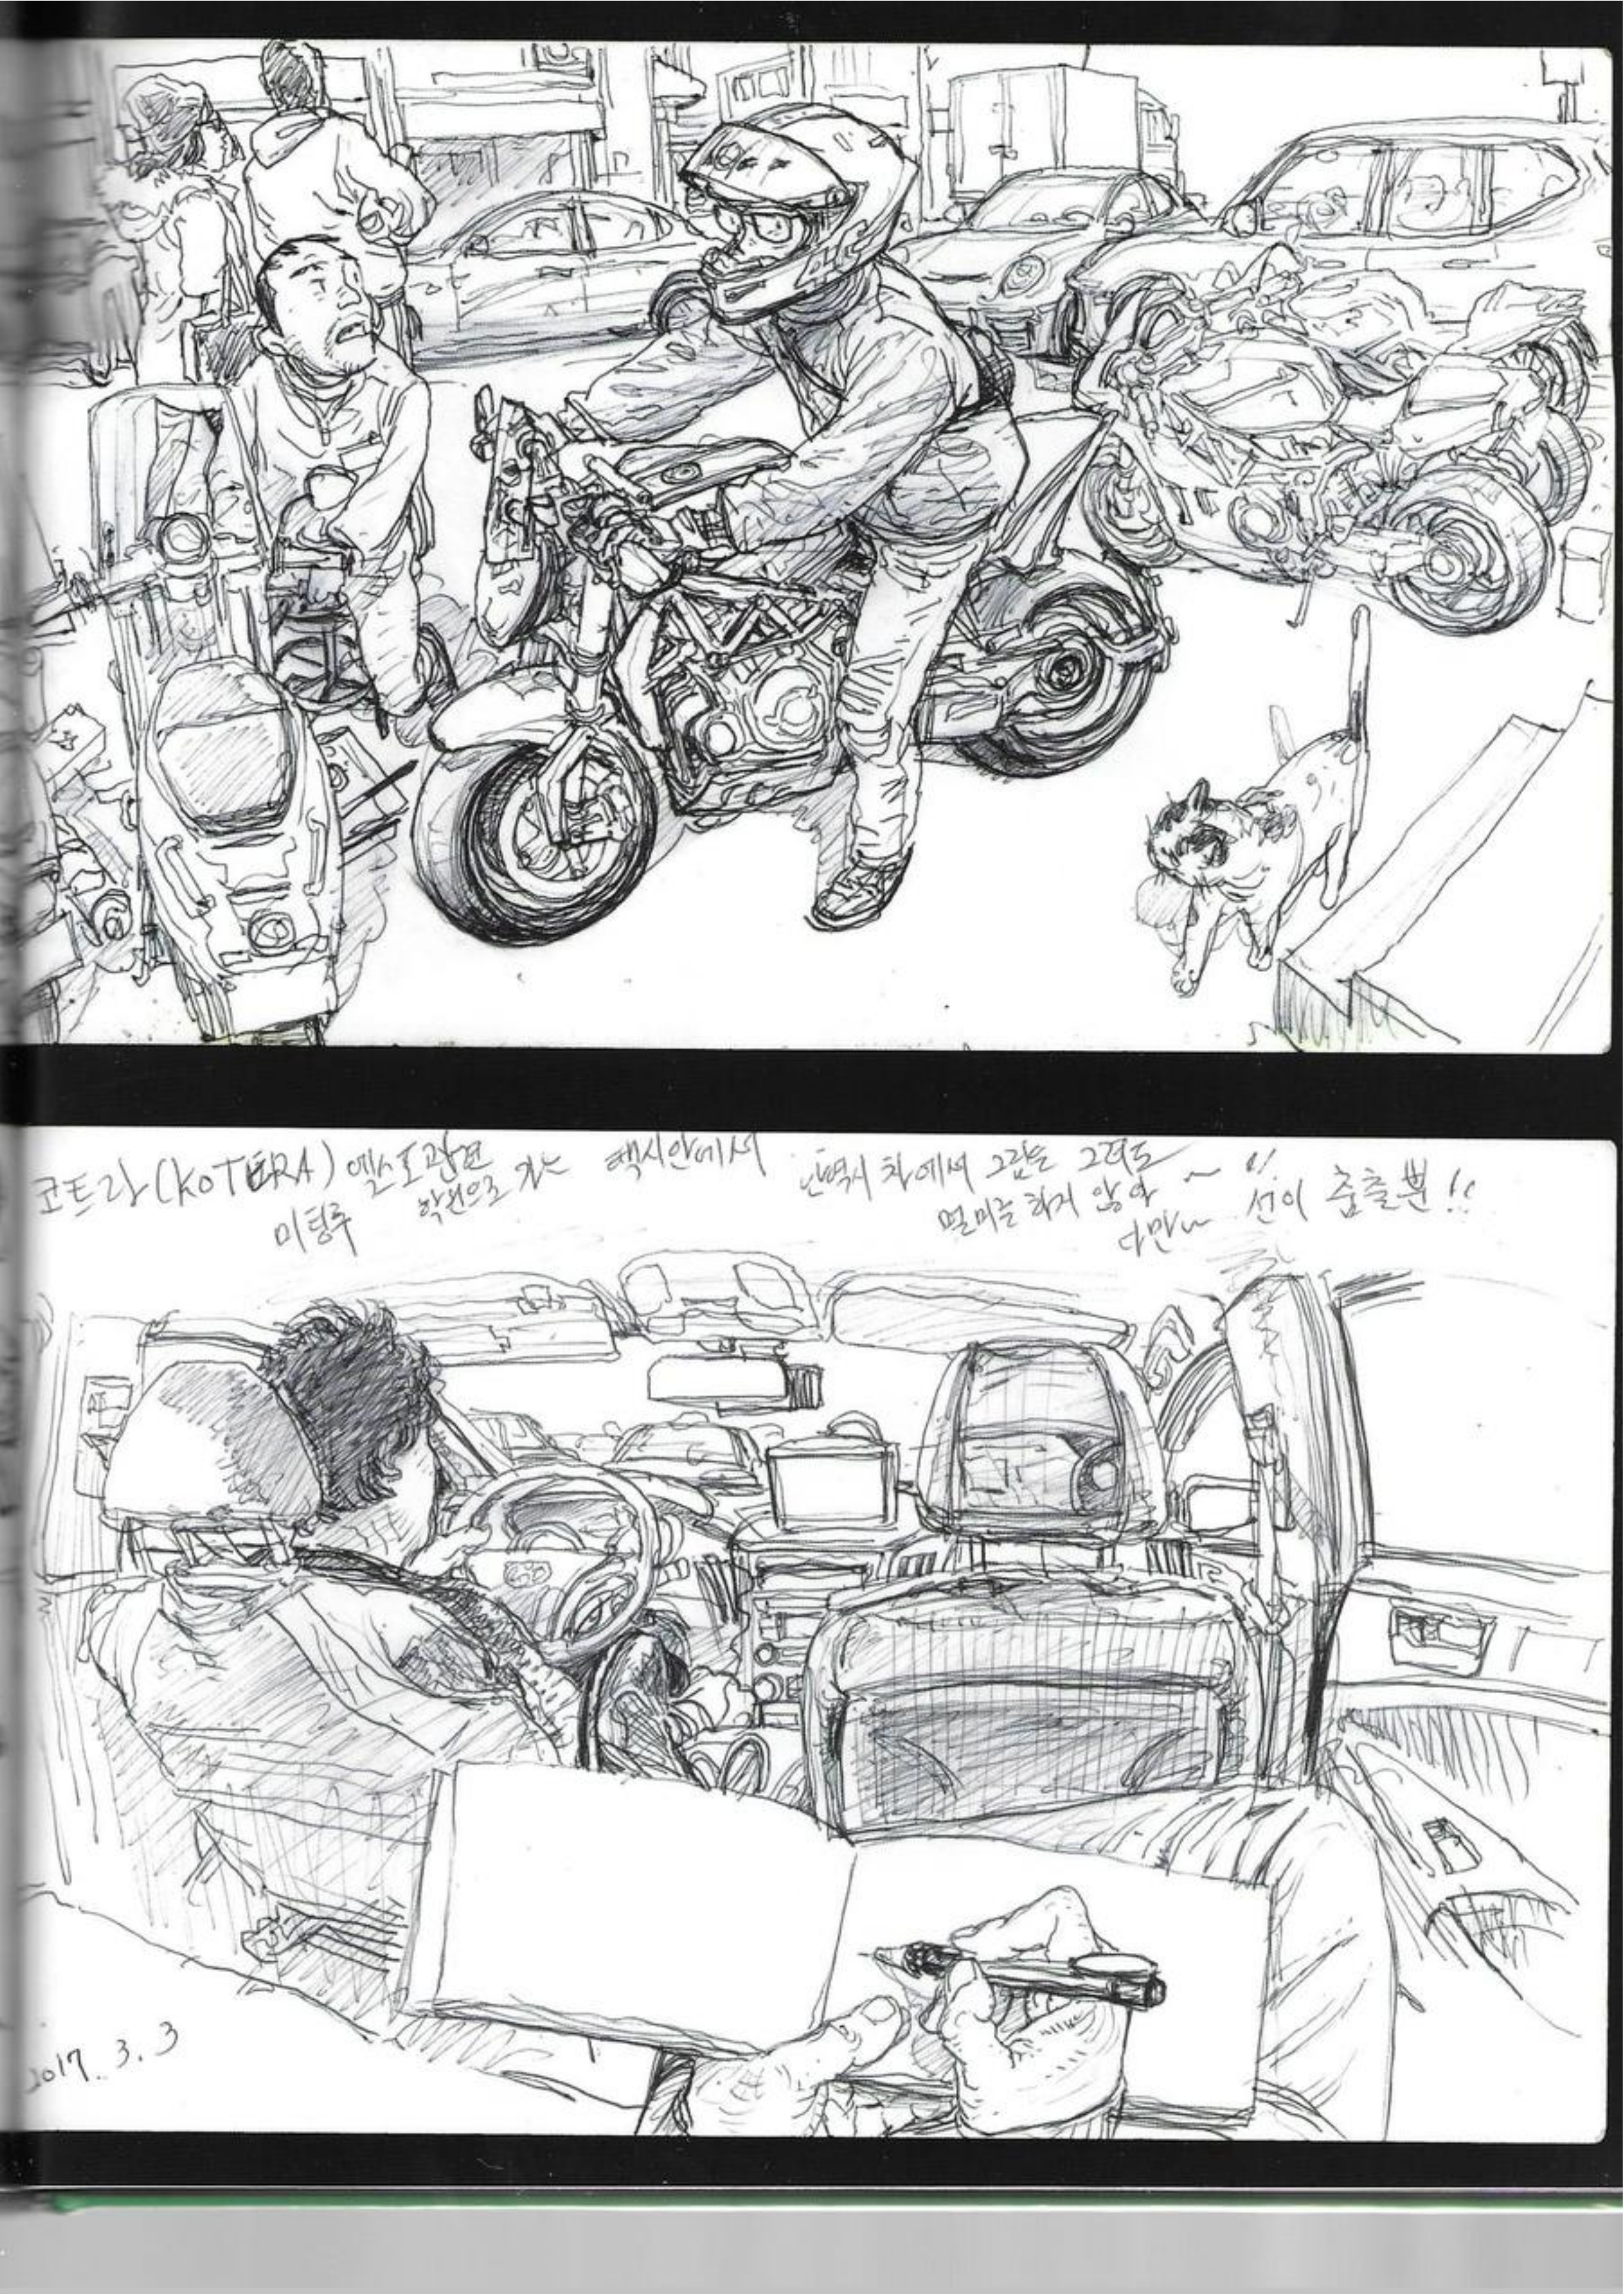 코트라 (KOTERA) 엑스포 관련
미팅후 학원으로 가는 택시안에서
난 역시 차에서 그림을 그려도
멀미를 하지 않아 ~ !
다만~ 선이 춤출뿐!!
2017. 3. 3